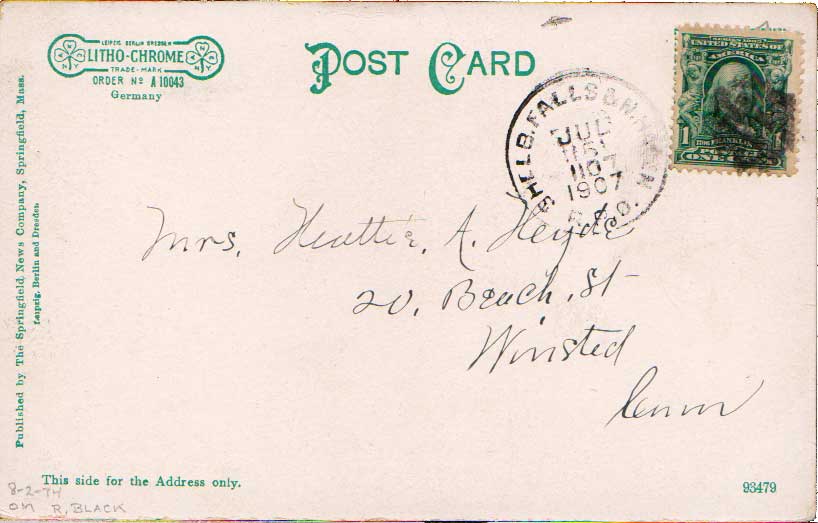 LEIPZIG BERLIN DRESDEN
LITHO-CHROME
TRADE-MARK
N N Y
N N Y
ORDER Nº A 10043
Germany
POST CARD
SHELB. FALLS & N.
R.P.O.
1907
SERIES 1902
UNITED STATES OF
AMERICA
1
FRANKLIN
POSTAGE
ONE
Mrs. Hattie. A. Heyde
20. Beach. St
Winsted
Conn
Published by The Springfield News Company, Springfield, Mass.
Leipzig, Berlin and Dresden.
This side for the Address only.
93479
8-2-74
ON R. BLACK